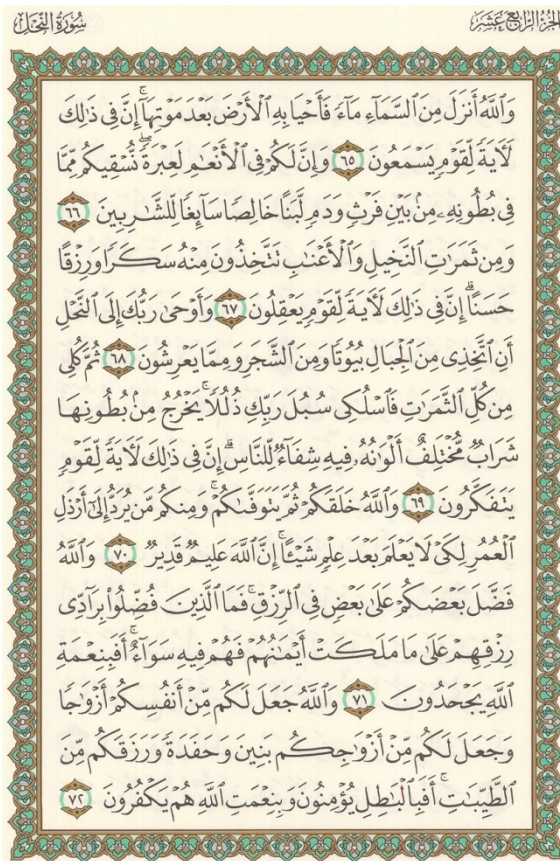 الجزء الرابع عشر
سورة النحل
وَٱللَّهُ أَنزَلَ مِنَ ٱلسَّمَآءِ مَآءً فَأَحْيَا بِهِ ٱلْأَرْضَ بَعْدَ مَوْتِهَآ ۚ إِنَّ فِى ذَٰلِكَ
لَءَايَةً لِّقَوْمٍ يَسْمَعُونَ ٦٥ وَإِنَّ لَكُمْ فِى ٱلْأَنْعَٰمِ لَعِبْرَةً ۖ نُّسْقِيكُم مِّمَّا
فِى بُطُونِهِۦ مِنۢ بَيْنِ فَرْثٍ وَدَمٍ لَّبَنًا خَالِصًا سَآئِغًا لِّلشَّٰرِبِينَ ٦٦
وَمِن ثَمَرَٰتِ ٱلنَّخِيلِ وَٱلْأَعْنَٰبِ تَتَّخِذُونَ مِنْهُ سَكَرًا وَرِزْقًا
حَسَنًا ۗ إِنَّ فِى ذَٰلِكَ لَءَايَةً لِّقَوْمٍ يَعْقِلُونَ ٦٧ وَأَوْحَىٰ رَبُّكَ إِلَى ٱلنَّحْلِ
أَنِ ٱتَّخِذِى مِنَ ٱلْجِبَالِ بُيُوتًا وَمِنَ ٱلشَّجَرِ وَمِمَّا يَعْرِشُونَ ٦٨ ثُمَّ كُلِى
مِن كُلِّ ٱلثَّمَرَٰتِ فَٱسْلُكِى سُبُلَ رَبِّكِ ذُلُلًا ۚ يَخْرُجُ مِنۢ بُطُونِهَا
شَرَابٌ مُّخْتَلِفٌ أَلْوَٰنُهُۥ فِيهِ شِفَآءٌ لِّلنَّاسِ ۗ إِنَّ فِى ذَٰلِكَ لَءَايَةً لِّقَوْمٍ
يَتَفَكَّرُونَ ٦٩ وَٱللَّهُ خَلَقَكُمْ ثُمَّ يَتَوَفَّىٰكُمْ ۚ وَمِنكُم مَّن يُرَدُّ إِلَىٰٓ أَرْذَلِ
ٱلْعُمُرِ لِكَىْ لَا يَعْلَمَ بَعْدَ عِلْمٍ شَيْـًٔا ۚ إِنَّ ٱللَّهَ عَلِيمٌ قَدِيرٌ ٧٠ وَٱللَّهُ
فَضَّلَ بَعْضَكُمْ عَلَىٰ بَعْضٍ فِى ٱلرِّزْقِ ۚ فَمَا ٱلَّذِينَ فُضِّلُوا۟ بِرَآدِّى
رِزْقِهِمْ عَلَىٰ مَا مَلَكَتْ أَيْمَٰنُهُمْ فَهُمْ فِيهِ سَوَآءٌ ۚ أَفَبِنِعْمَةِ
ٱللَّهِ يَجْحَدُونَ ٧١ وَٱللَّهُ جَعَلَ لَكُم مِّنْ أَنفُسِكُمْ أَزْوَٰجًا
وَجَعَلَ لَكُم مِّنْ أَزْوَٰجِكُم بَنِينَ وَحَفَدَةً وَرَزَقَكُم مِّنَ
ٱلطَّيِّبَٰتِ ۚ أَفَبِٱلْبَٰطِلِ يُؤْمِنُونَ وَبِنِعْمَتِ ٱللَّهِ هُمْ يَكْفُرُونَ ٧٢